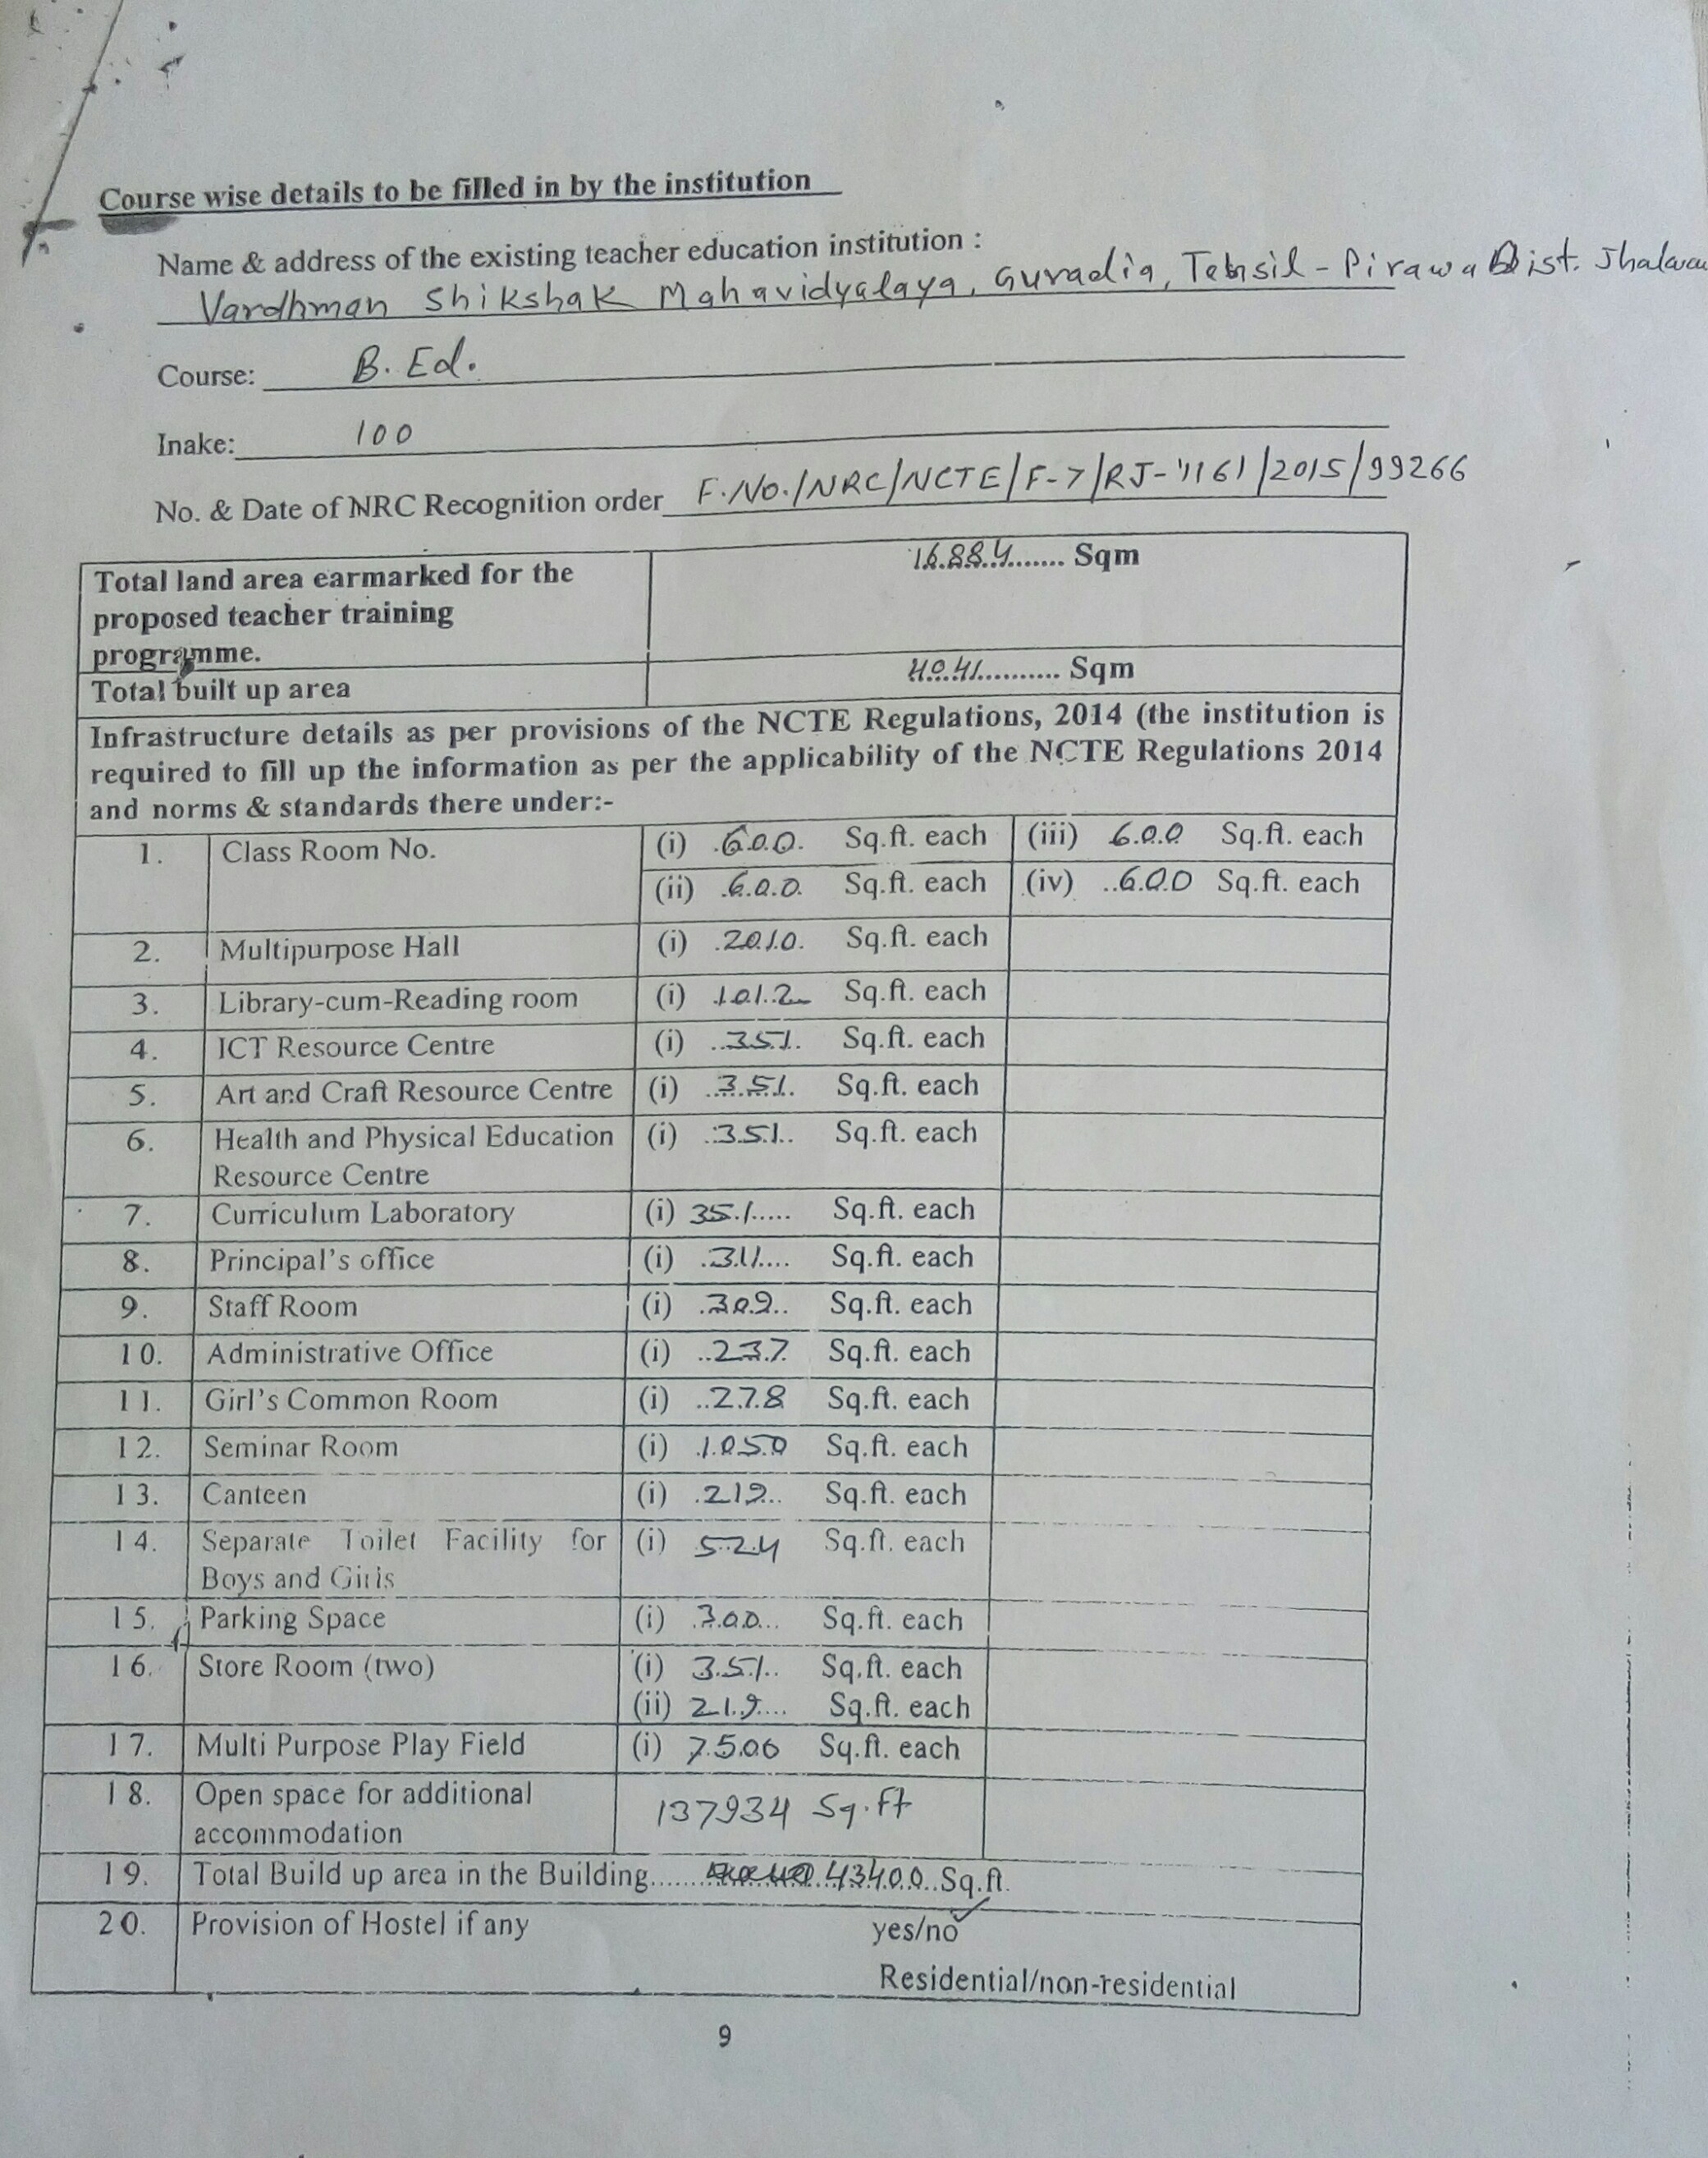 Course wise details to be filled in by the institution
Name & address of the existing teacher education institution :
Vardhman Shikshak Mahavidyalaya, Guradia, Tehsil - Pirawa Dist. Jhalawa
Course: B. Ed.
Inake: 100
No. & Date of NRC Recognition order F.No./NRC/NCTE/F-7/RJ-1161/2015/99266
Total land area earmarked for the 16884....... Sqm
proposed teacher training
programme.
Total built up area 4041.......... Sqm
Infrastructure details as per provisions of the NCTE Regulations, 2014 (the institution is
required to fill up the information as per the applicability of the NCTE Regulations 2014
and norms & standards there under:-
1. Class Room No. (i) 600 Sq.ft. each (iii) 600 Sq.ft. each
(ii) 600 Sq.ft. each (iv) 600 Sq.ft. each
2. Multipurpose Hall (i) 2010 Sq.ft. each
3. Library-cum-Reading room (i) 1012 Sq.ft. each
4. ICT Resource Centre (i) 351 Sq.ft. each
5. Art and Craft Resource Centre (i) 351 Sq.ft. each
6. Health and Physical Education (i) 351 Sq.ft. each
Resource Centre
7. Curriculum Laboratory (i) 351..... Sq.ft. each
8. Principal's office (i) Sq.ft. each
9. Staff Room (i) 309 Sq.ft. each
10. Administrative Office (i) 237 Sq.ft. each
11. Girl's Common Room (i) 278 Sq.ft. each
12. Seminar Room (i) 1050 Sq.ft. each
13. Canteen (i) 219 Sq.ft. each
14. Separate Toilet Facility for (i) 524 Sq.ft. each
Boys and Girls
15. Parking Space (i) 300 Sq.ft. each
16. Store Room (two) (i) 351 Sq.ft. each
(ii) 219 Sq.ft. each
17. Multi Purpose Play Field (i) 7500 Sq.ft. each
18. Open space for additional 137934 Sq.ft
accommodation
19. Total Build up area in the Building....... 43400 Sq.ft.
20. Provision of Hostel if any yes/no ✓
Residential/non-residential
9